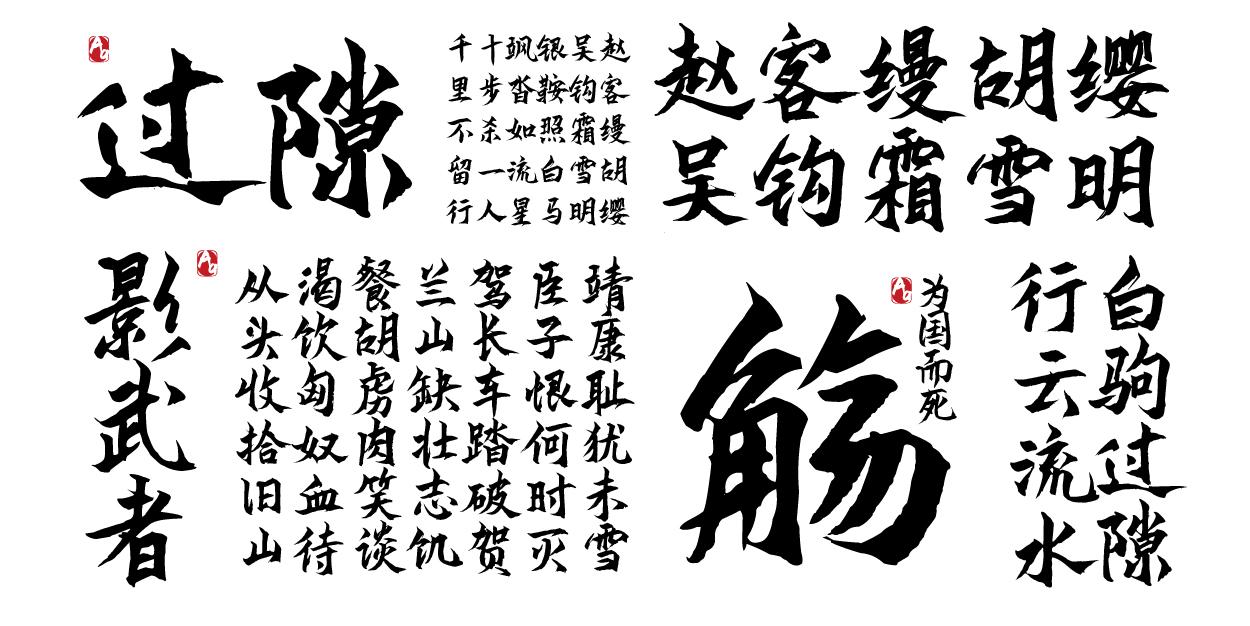 过隙
赵客缦胡缨
吴钩霜雪明
银鞍照白马
飒沓如流星
十步杀一人
千里不留行
赵客缦胡缨
吴钩霜雪明
影武者
靖康耻犹未雪
臣子恨何时灭
驾长车踏破贺
兰山缺壮志饥
餐胡虏肉笑谈
渴饮匈奴血待
从头收拾旧山
觞
为国而死
白驹过隙
行云流水